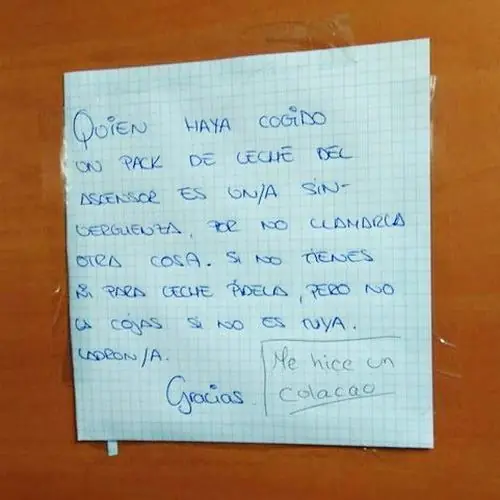 QUIEN HAYA COGIDO
UN PACK DE LECHE DEL
ASCENSOR ES UN/A SIN-
VERGUENZA, POR NO LLAMARLA
OTRA COSA. SI NO TIENES
NI PARA LECHE PÍDELA, PERO NO
LA COJAS SI NO ES TUYA.
LADRON/A.
Gracias.
Me hice un
colacao